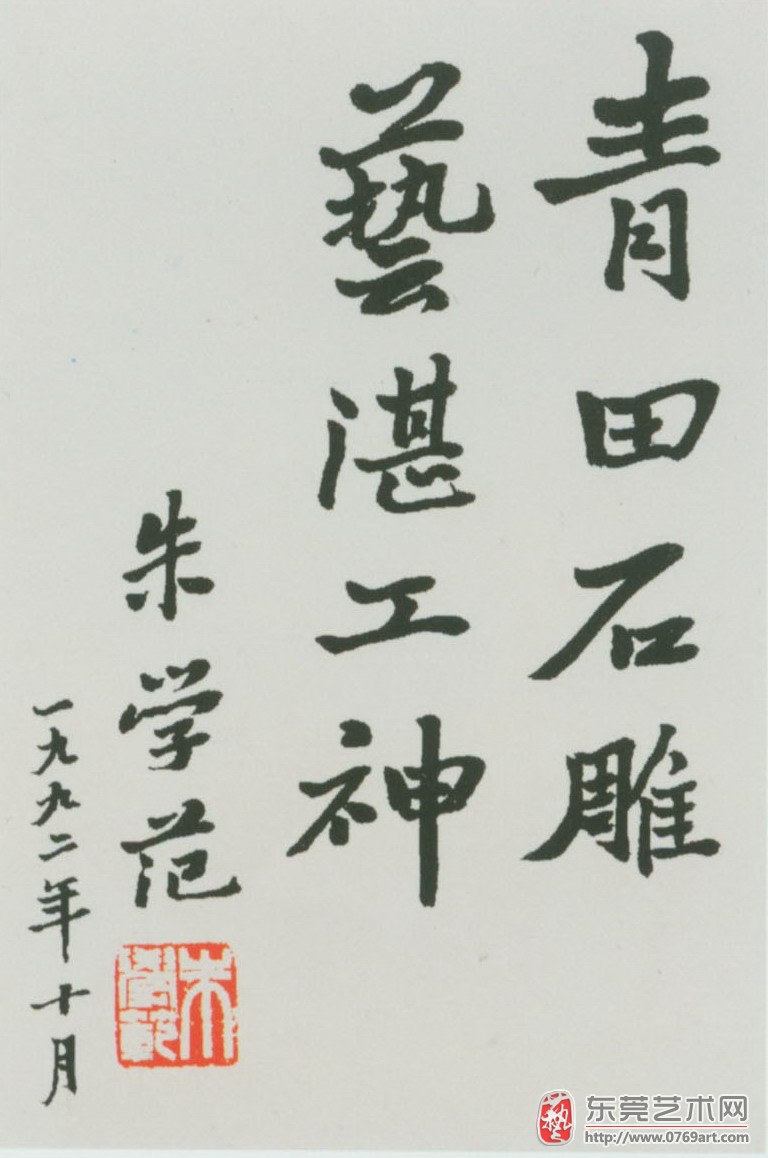 青田石雕
藝湛工神
朱学范
一九九二年十月
朱學範
东莞艺术网
http://www.0769art.com